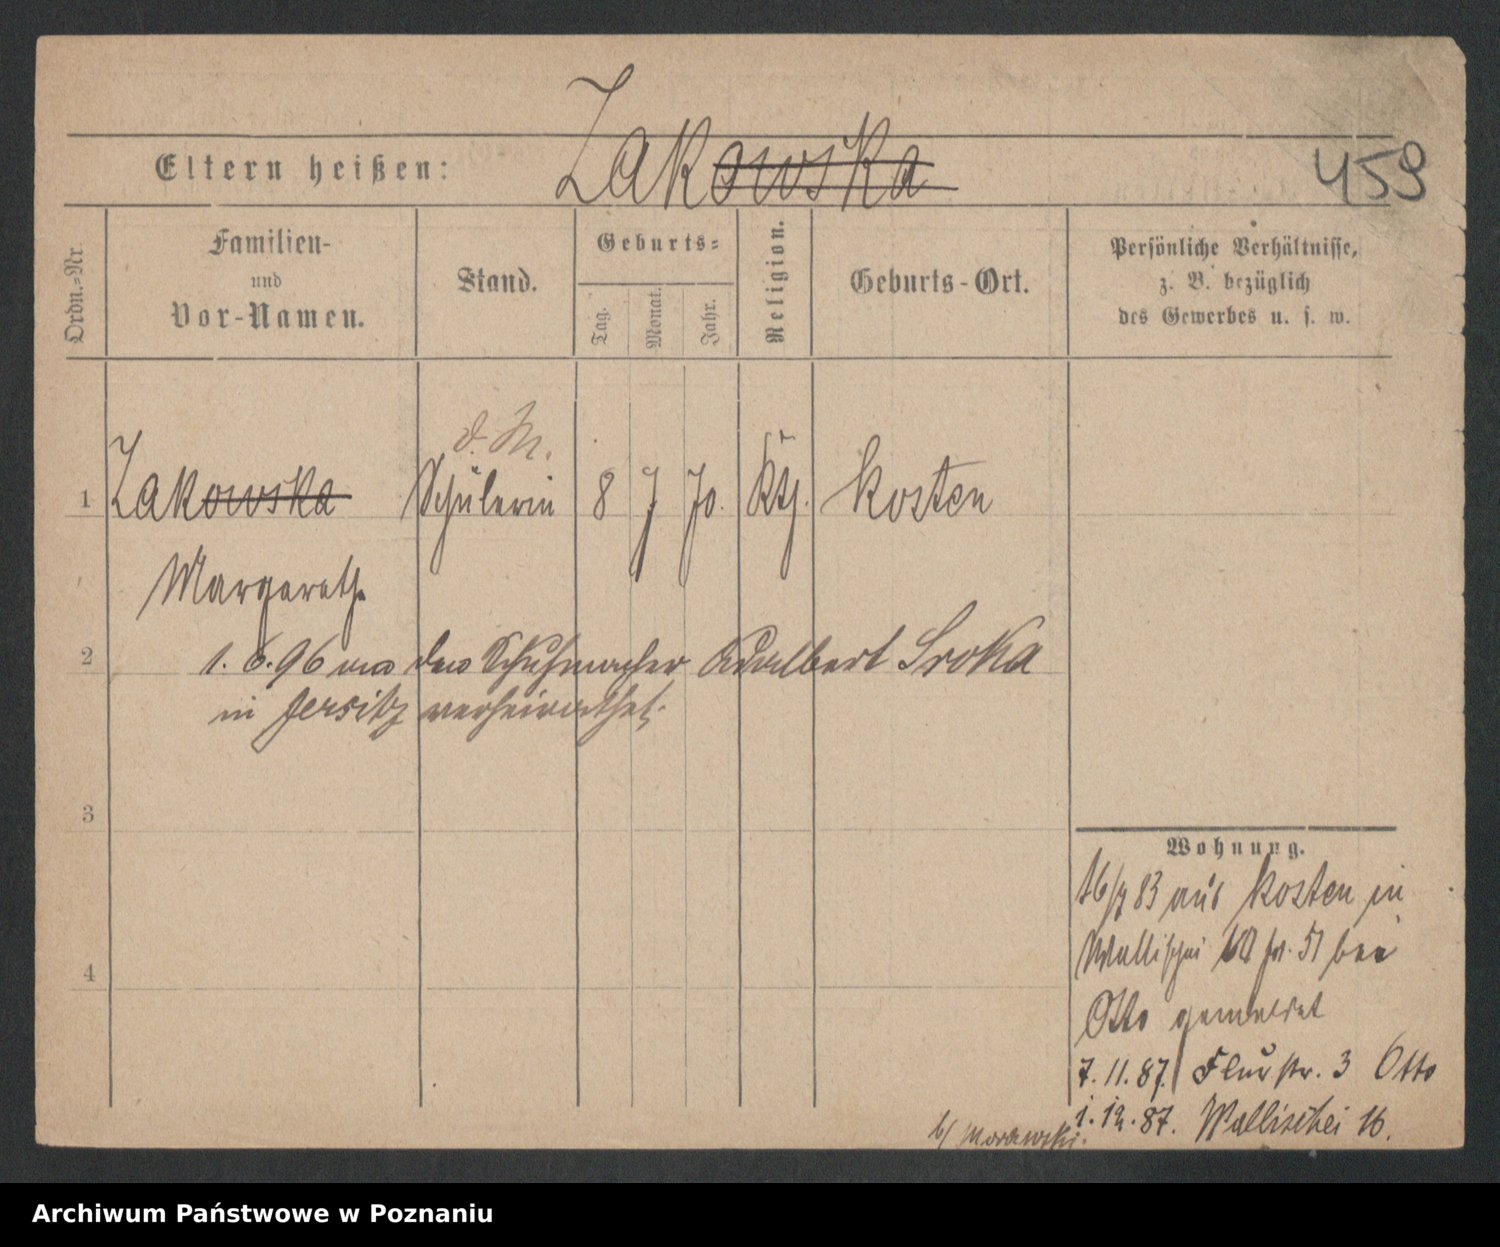 Zakowska
Eltern heißen:
459
Ordn.-Nr.
Familien-
und
Vor-Namen.
Stand.
Geburts-
Tag.
Monat.
Jahr.
Religion.
Geburts-Ort.
Persönliche Verhältnisse,
z. B. bezüglich
des Gewerbes u. s. w.
d. M.
1 Zakowska Schülerin 8 7 70. Kth. Kosten
Margareth
2 1. 6. 96 den Schuhmacher Adalbert Sroka
in Jersitz verheirathet.
3
4
Wohnung.
16/7 83 aus Kosten in
Wallischei bei
Otto gemeldet
7. 11. 87. Flurstr. 3 Otto
1. 12. 87. Wallischei 16.
b/ Morawski.
Archiwum Państwowe w Poznaniu